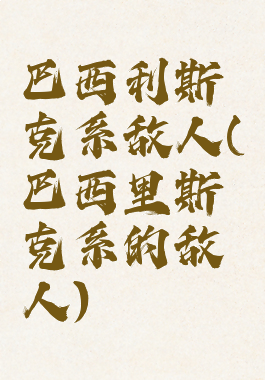 巴西利斯
克系敌人(
巴西里斯
克系的敌
人)